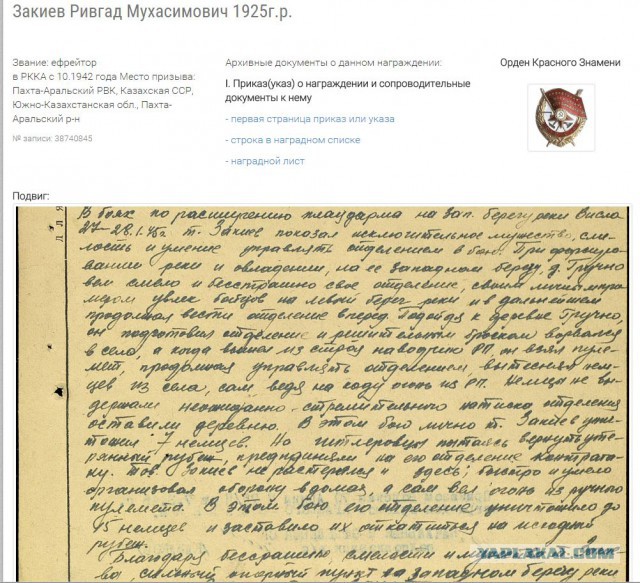 Закиев Ривгад Мухасимович 1925г.р.
Звание: ефрейтор
в РККА с 10.1942 года Место призыва:
Пахта-Аральский РВК, Казахская ССР,
Южно-Казахстанская обл., Пахта-
Аральский р-н
№ записи: 38740845
Архивные документы о данном награждении:
I. Приказ(указ) о награждении и сопроводительные
документы к нему
- первая страница приказ или указа
- строка в наградном списке
- наградной лист
Орден Красного Знамени
Подвиг:
В боях по расширению плацдарма на зап. берегу реки Висла
27-28.1.45г т. Закиев показал исключительное мужество, сме-
лость и умение управлять отделением в бою. При форсиро-
вании реки и овладении, на ее западном берегу, д. Гручно
вел смело и бесстрашно свое отделение, своим личным приме-
ром увлек бойцов на левый берег реки и в дальнейшем
продолжал вести отделение вперед. Подойдя к деревне Гручно,
он подготовил отделение и решительным броском ворвался
в село, а когда вышел из строя наводчик РП, он взял пуле-
мет, продолжая управлять отделением, вытеснял нем-
цев из села, сам ведя на ходу огонь из РП. Немцы не вы-
держали неожиданно-стремительного натиска отделения
оставили деревню. В этом бою лично т. Закиев уни-
тожил 7 немцев. Но гитлеровцы пытаясь вернуть уте-
рянный рубеж, предприняли на его отделение контрата-
ку. Тов. Закиев не растерялся и здесь; быстро и умело
организовал оборону в домах, а сам вел огонь из ручного
пулемета. В этом бою его отделение уничтожило до
15 немцев и заставило их откатиться на исходный
рубеж.
Благодаря бесстрашию, смелости и
ва, сильный опорный пункт на западном берегу реки
YAPLAKAL.COM